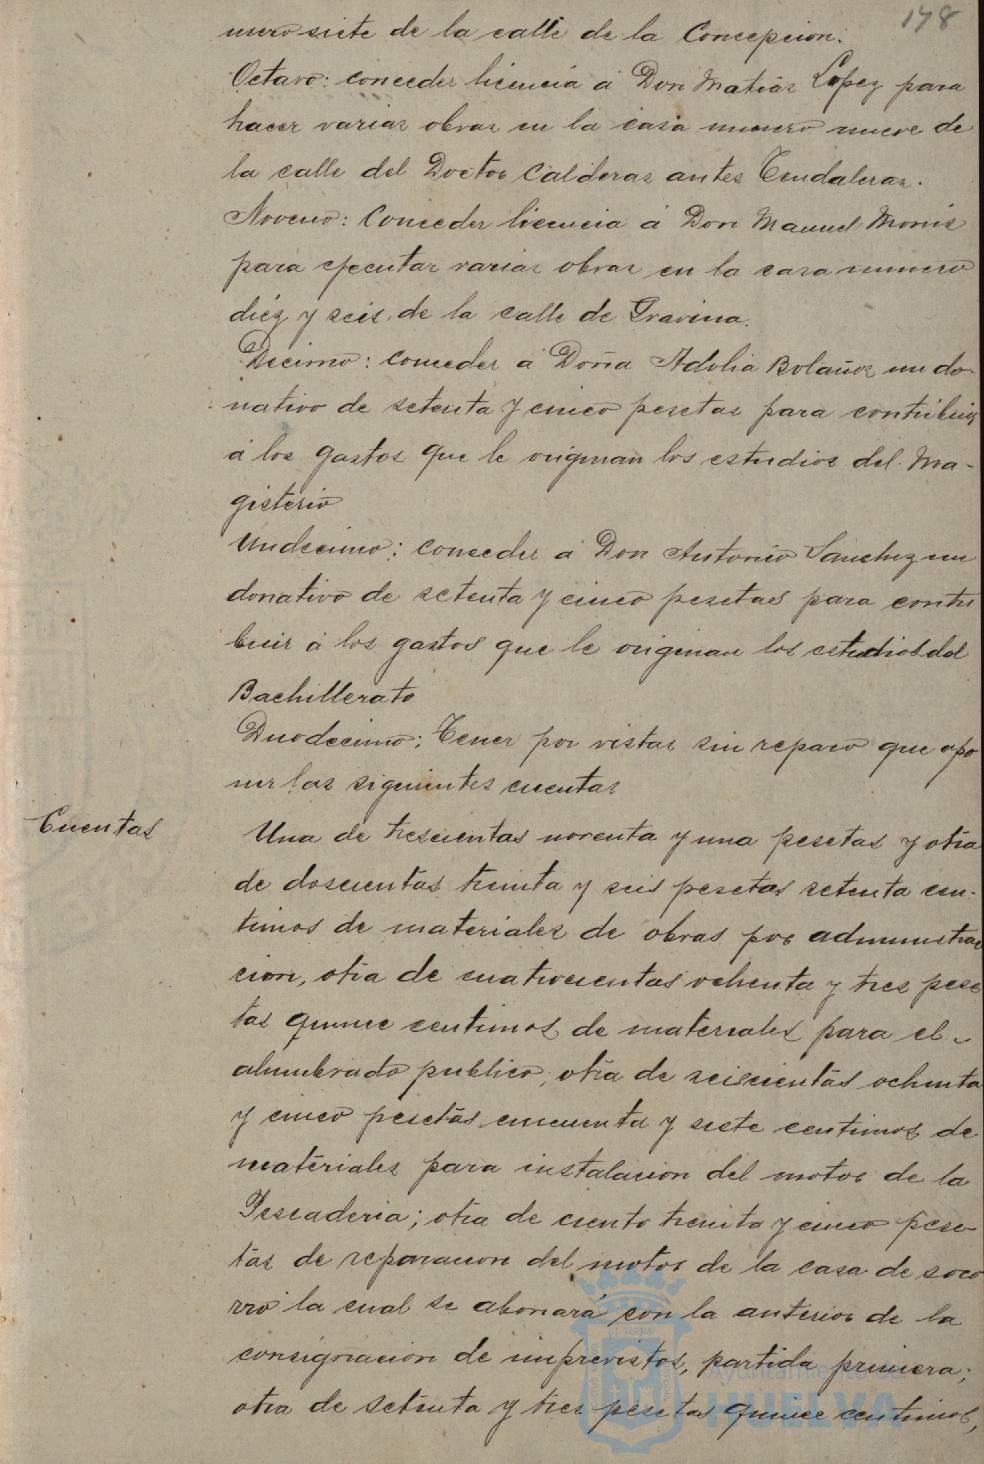 178
mero siete de la calle de la Concepcion.
Octavo: conceder licencia á Don Matias Lopez para
hacer varias obras en la casa numero nueve de
la calle del Doctor Calderas antes Tendaleras.
Noveno: Conceder licencia á Don Manuel Monis
para ejecutar varias obras en la casa numero
diéz y seis de la calle de Gravina.
Decimo: conceder á Doña Adolia Bolaños un do-
nativo de setenta y cinco pesetas para contribuir
á los gastos que le originan los estudios del Ma-
gisterio
Undecimo: conceder á Don Antonio Sanchez un
donativo de setenta y cinco pesetas para contri
buir á los gastos que le originan los estudios del
Bachillerato
Duodecimo: Tener por vistas sin reparo que opo
ner las siguientes cuentas
Cuentas
Una de trescientas noventa y una pesetas y otra
de doscientas treinta y seis pesetas setenta cen-
timos de materiales de obras por administra
cion, otra de cuatrocientas ochenta y tres pese
tas quince centimos de materiales para el
alumbrado publico; otra de seiscientas ochenta
y cinco pesetas cincuenta y siete centimos de
materiales para instalacion del motor de la
Pescaderia; otra de ciento treinta y cinco pese-
tas de reparacion del motor de la casa de soco
rro la cual se abonará con la anterior de la
consignacion de imprevistos, partida primera;
otra de setenta y tres pesetas quince centimos,
Ayuntamiento de
HUELVA